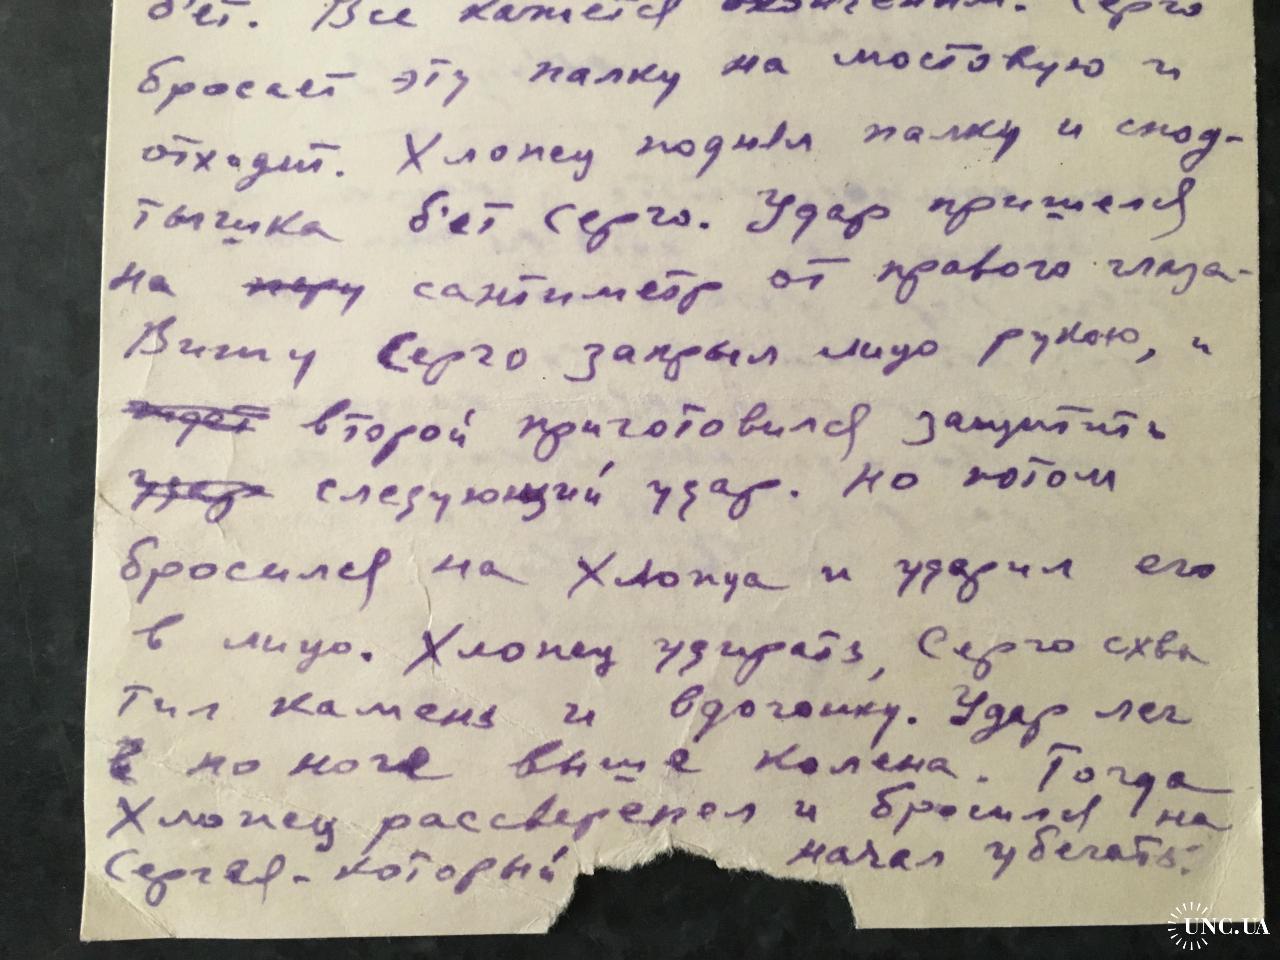 б'ет. Все кажется оконченим. Серго
бросает эту палку на мостовую и
отходит. Хлопец поднял палку и спод-
тышка б'ет Серго. Удар пришелся
на пару сантиметр от правого глаза-
Вижу Серго закрыл лицо рукою, и
ждет второй приготовился защитить
удар следующий удар. Но потом
бросился на Хлопца и ударил его
в лицо. Хлопец удирать, Серго схва
тил камень и вдогонку. Удар лег
в по ноге выше колена. Тогда
Хлопец рассверепел и бросился на
Сергея - который начал убегать.
UNC.UA